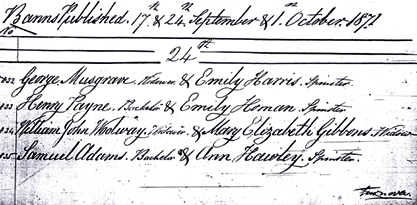 Banns Published. 17th & 24th September & 1st October. 1871
No
24th
832 George Musgrave. Widower & Emily Harris. Spinster
833 Henry Payne. Bachelor & Emily Homan. Spinster
834 William John Woolway. Widower. & Mary Elizabeth Gibbons. Widow
835 Samuel Adams. Bachelor & Ann Hawley. Spinster.
turnover.